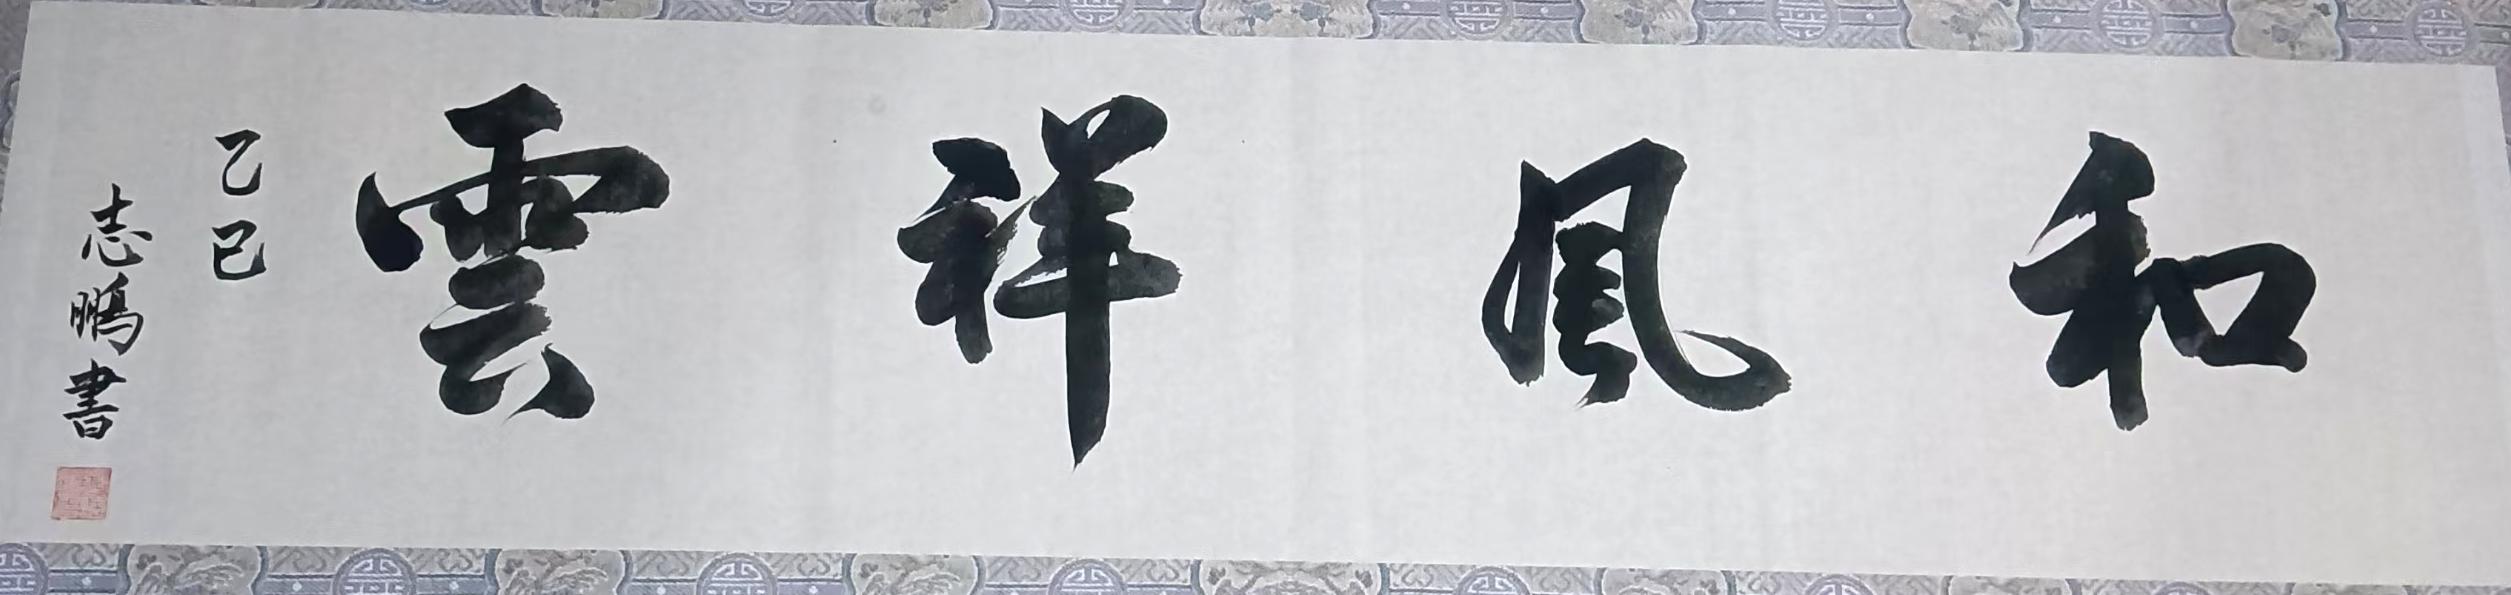 和風祥雲
乙巳
志鵬書